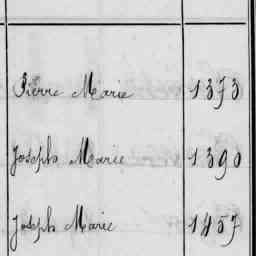 Pierre Marie 1373
Joseph Marie 1390
Joseph Marie 1457